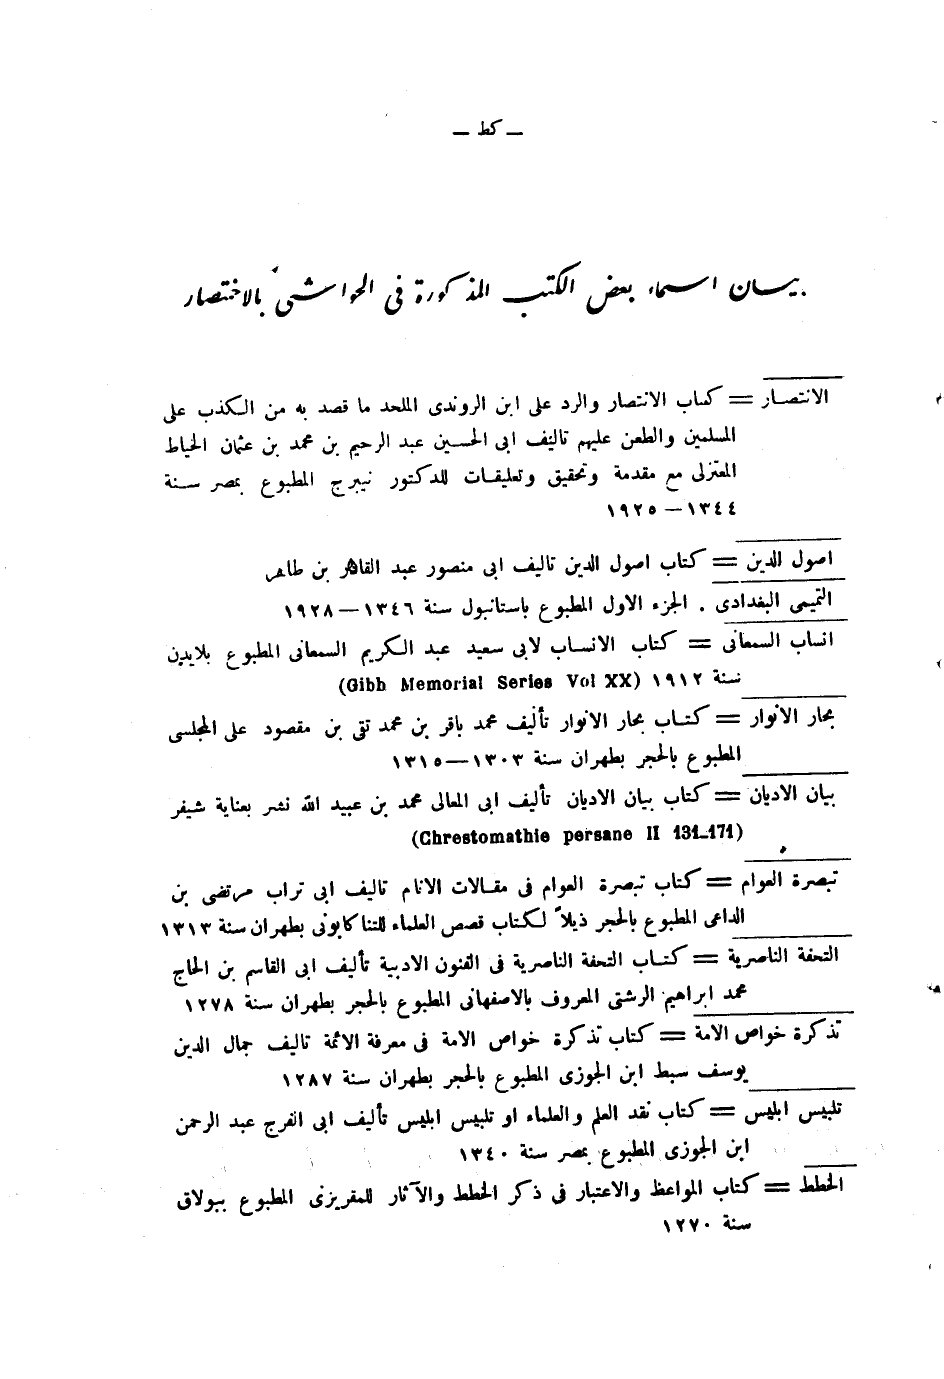 ــ كط ــ
بيان اسماء بعض الكتب المذكورة فى الحواشى بالاختصار
الانتصار = كتاب الانتصار والرد على ابن الروندى الملحد ما قصد به من الكذب على
المسلمين والطعن عليهم تاليف ابى الحسين عبد الرحيم بن محمد بن عثمان الخياط
المعتزلى مع مقدمة وتحقيق وتعليقات للدكتور نيبرج المطبوع بمصر سنة
١٣٤٤ – ١٩٢٥
اصول الدين = كتاب اصول الدين تاليف ابى منصور عبد القاهر بن طاهر
التميمى البغدادى . الجزء الاول المطبوع باستانبول سنة ١٣٤٦ – ١٩٢٨
انساب السمعانى = كتاب الانساب لابى سعيد عبد الكريم السمعانى المطبوع بلايدن
سنة ١٩١٢ (Gibb Memorial Series Vol XX)
بحار الانوار = كتاب بحار الانوار تأليف محمد باقر بن محمد تقى بن مقصود على المجلسى
المطبوع بالحجر بطهران سنة ١٣٠٣ – ١٣١٥
بيان الاديان = كتاب بيان الاديان تأليف ابى المعالى محمد بن عبيد الله نشر بعناية شيفر
(Chrestomathie persane II 131-171)
تبصرة العوام = كتاب تبصرة العوام فى مقالات الانام تاليف ابى تراب مرتضى بن
الداعى المطبوع بالحجر ذيلاً لكتاب قصص العلماء للتنا كابونى بطهران سنة ١٣١٣
التحفة الناصرية = كتاب التحفة الناصرية فى الفنون الادبية تأليف ابى القاسم بن الحاج
محمد ابراهيم الرشتى المعروف بالاصفهانى المطبوع بالحجر بطهران سنة ١٢٧٨
تذكرة خواص الامة = كتاب تذكرة خواص الامة فى معرفة الائمة تاليف جمال الدين
يوسف سبط ابن الجوزى المطبوع بالحجر بطهران سنة ١٢٨٧
تلبيس ابليس = كتاب نقد العلم والعلماء او تلبيس ابليس تأليف ابى الفرج عبد الرحمن
ابن الجوزى المطبوع بمصر سنة ١٣٤٠
الخطط = كتاب المواعظ والاعتبار فى ذكر الخطط والآثار للمقريزى المطبوع ببولاق
سنة ١٢٧٠